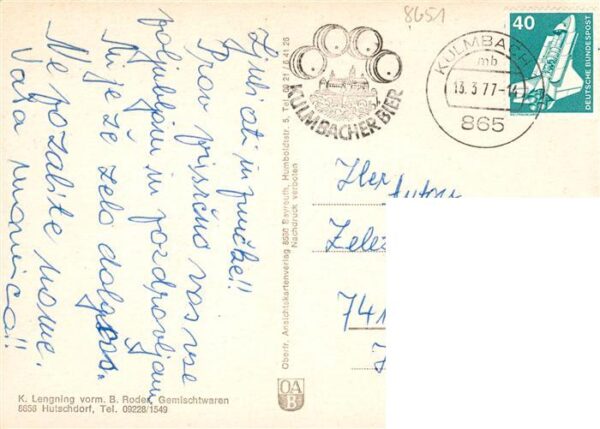 Ljubi ati in punčke!!
Prav prisrčno vas vse
poljubljam in pozdravljam
Mi je že zelo dolgčas.
Ne pozabite mome.
Vaša mamica!!
K. Lengning vorm. B. Roder, Gemischtwaren
8658 Hutschdorf, Tel. 09228/1549
Oberfr. Ansichtskartenverlag 8580 Bayreuth, Humboldtstr. 5, Tel. 09 21 / 6 41 26
Nachdruck verboten
OA
B
8651
KULMBACHER BIER
KULMBACH
mb
13.3.77-14
865
40
DEUTSCHE BUNDESPOST
Herr
Anton
Želez
741